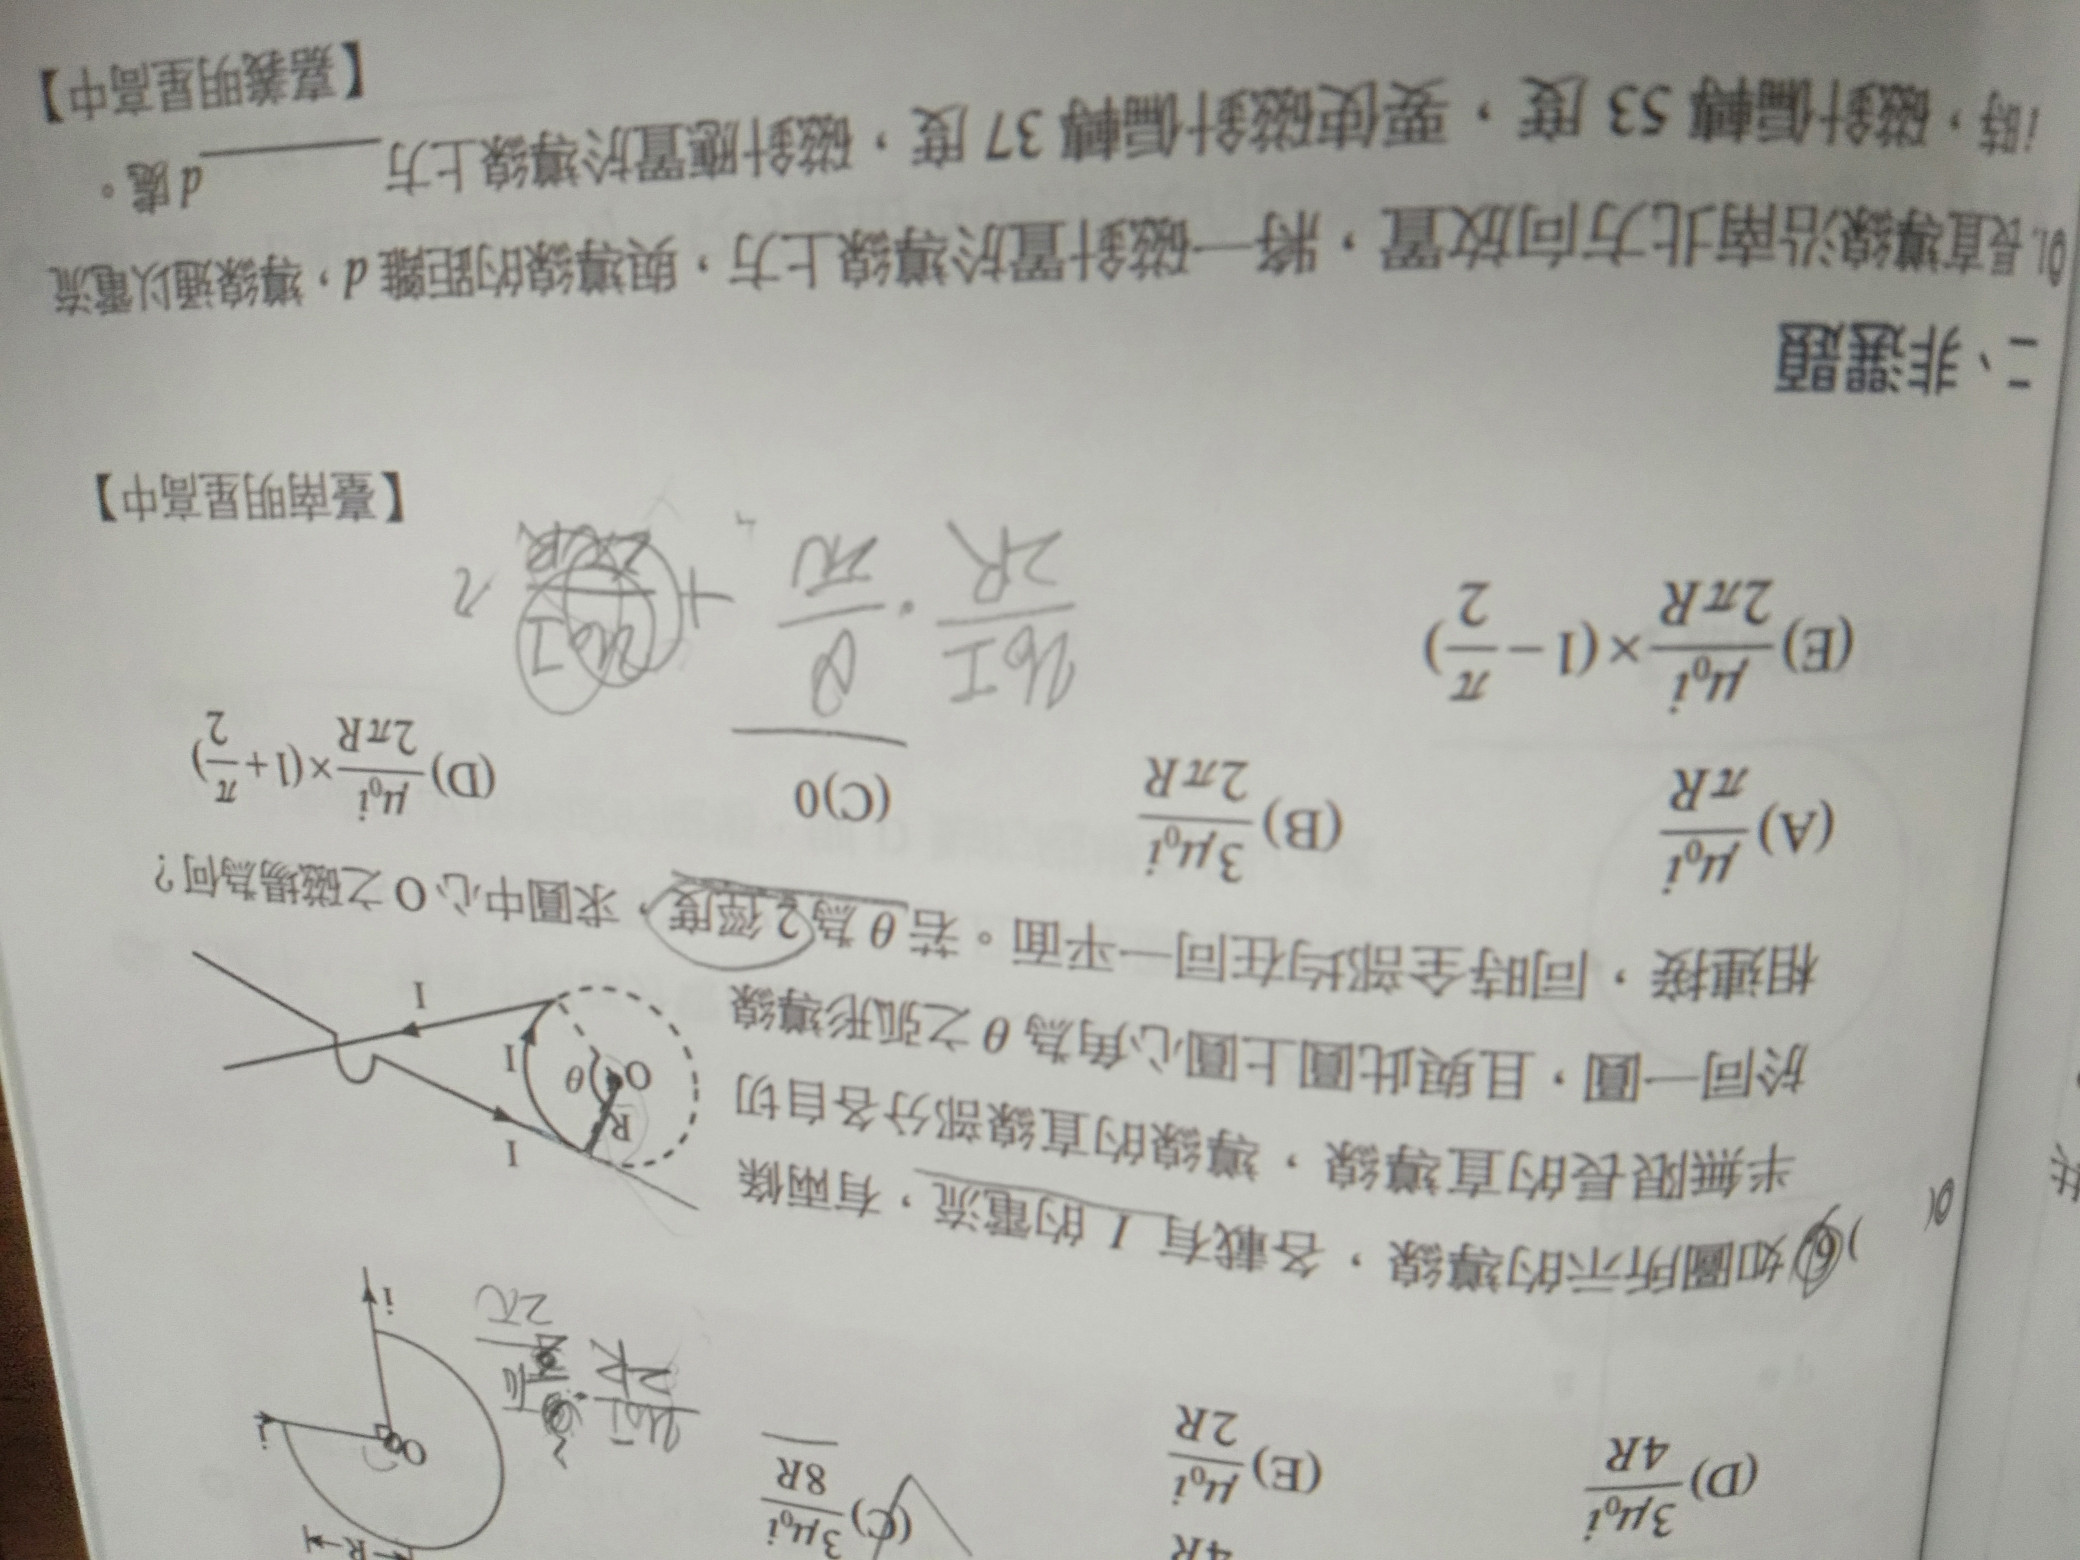 4R
(D) 3μ₀i/4R (E) μ₀i/2R (C) 3μ₀i/8R
R
O
i
i
μ₀I/2R
2π
6 如圖所示的導線,各載有 I 的電流,有兩條
半無限長的直導線,導線的直線部分各自切
於同一圓,且與此圓上圓心角為 θ 之弧形導線
相連接,同時全部均在同一平面。若 θ 為 2 徑度,求圓中心 O 之磁場為何?
I
R
O
θ
I
I
(A) μ₀i/πR (B) 3μ₀i/2πR (C) 0 (D) μ₀i/2πR ×(1+π/2)
(E) μ₀i/2πR ×(1−π/2)
μ₀I/2R · θ/2π +
【臺南明星高中】
二、非選題
01. 長直導線沿南北方向放置,將一磁針置於導線上方,與導線的距離 d,導線通以電流
i 時,磁針偏轉 53 度,要使磁針偏轉 37 度,磁針應置於導線上方______d 處。
【嘉義明星高中】